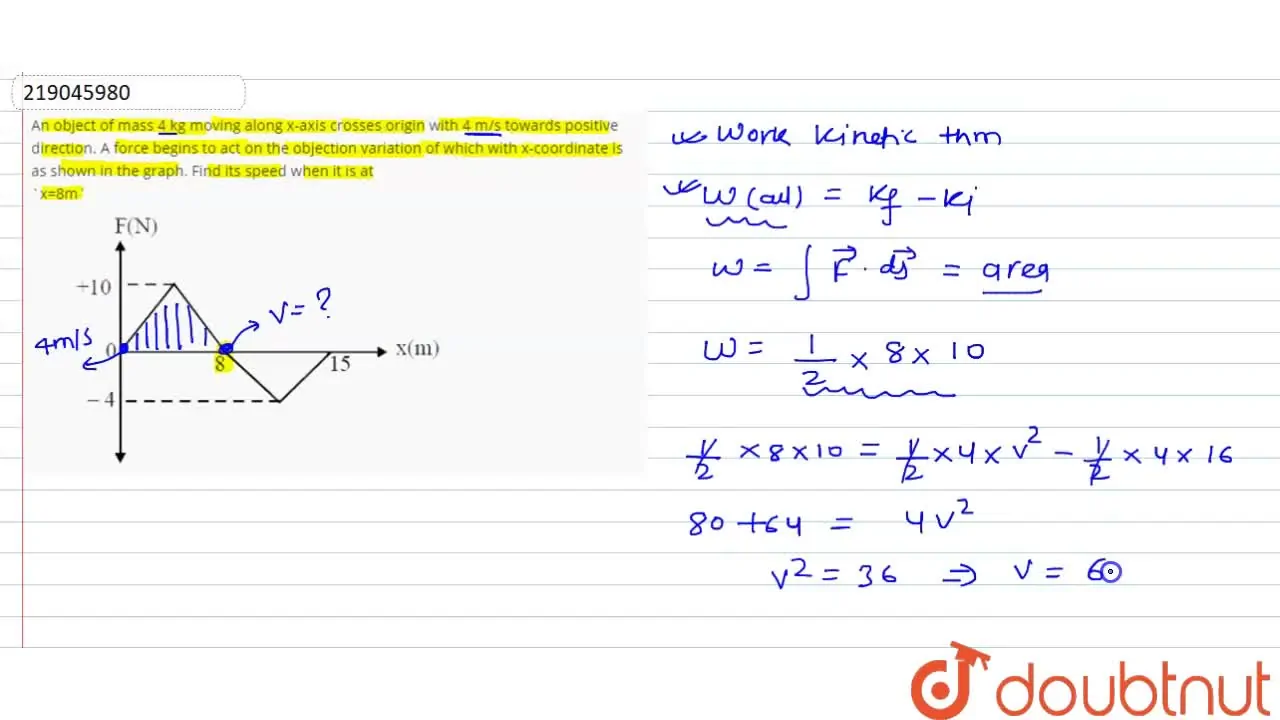 219045980
An object of mass 4 kg moving along x-axis crosses origin with 4 m/s towards positive
direction. A force begins to act on the objection variation of which with x-coordinate is
as shown in the graph. Find its speed when it is at
`x=8m`
F(N)
+10
V = ?
4m/s
0
8
15
x(m)
– 4
Work Kinetic thm
W (all) = Kf - Ki
W = ∫ F⃗ · ds⃗ = area
W = 1/2 × 8 × 10
1/2 × 8 × 10 = 1/2 × 4 × V² - 1/2 × 4 × 16
80 + 64 = 4V²
V² = 36 ⇒ V = 6
doubtnut